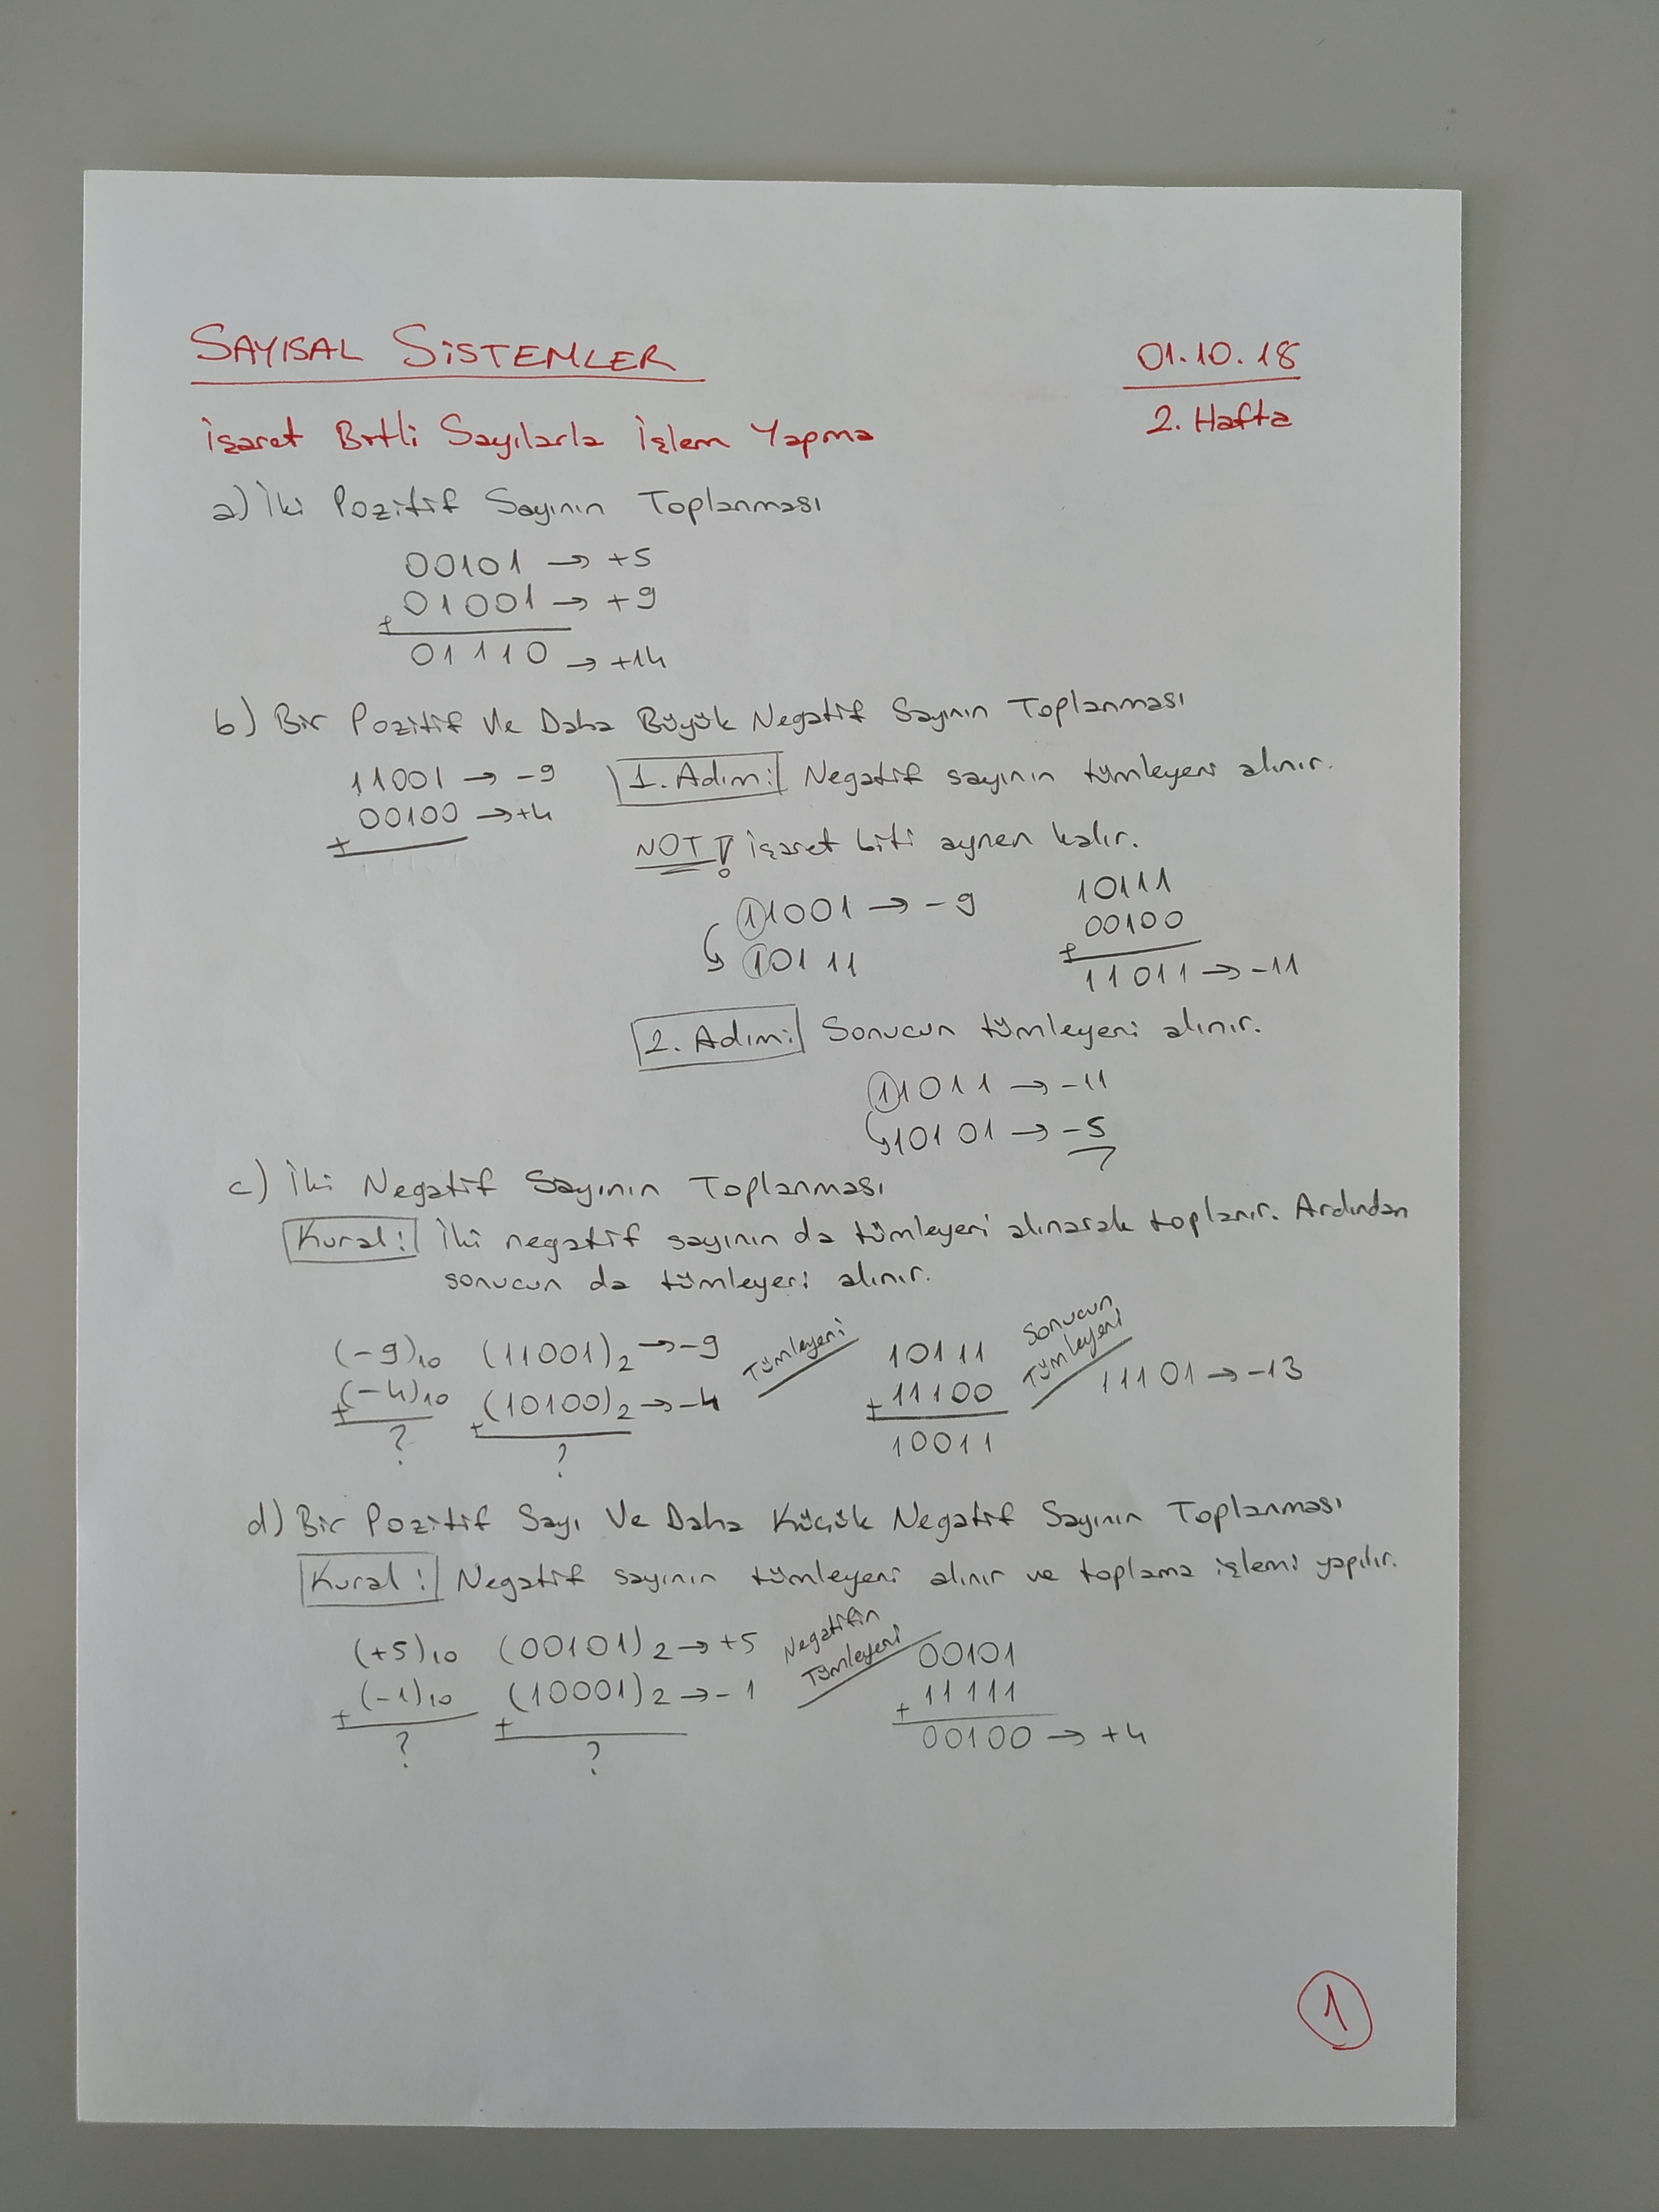 SAYISAL SİSTEMLER
01.10.18
2. Hafta
İşaret Bitli Sayılarla İşlem Yapma
a) İki Pozitif Sayının Toplanması
00101 → +5
+ 01001 → +9
01110 → +14
b) Bir Pozitif Ve Daha Büyük Negatif Sayının Toplanması
11001 → -9
+ 00100 → +4
1. Adım: Negatif sayının tümleyeni alınır.
NOT! İşaret biti aynen kalır.
11001 → -9
↳ 10111
10111
+ 00100
11011 → -11
2. Adım: Sonucun tümleyeni alınır.
11011 → -11
↳ 10101 → -5
c) İki Negatif Sayının Toplanması
Kural: İki negatif sayının da tümleyeni alınarak toplanır. Ardından
sonucun da tümleyeni alınır.
(-9)10 (11001)2 → -9 Tümleyeni 10111 sonucun Tümleyeni 11101 → -13
+ (-4)10 + (10100)2 → -4 + 11100
? ? 10011
d) Bir Pozitif Sayı Ve Daha Küçük Negatif Sayının Toplanması
Kural: Negatif sayının tümleyeni alınır ve toplama işlemi yapılır.
(+5)10 (00101)2 → +5 Negatifin Tümleyeni 00101
+ (-1)10 + (10001)2 → -1 + 11111
? ? 00100 → +4
1